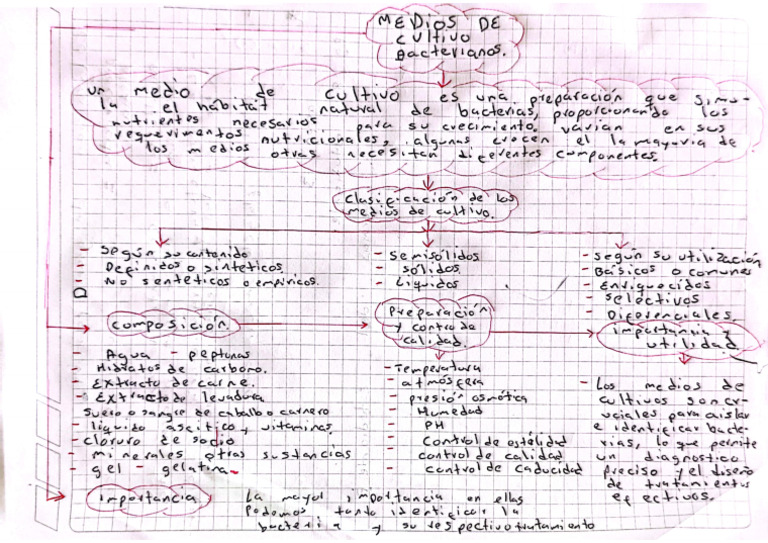 MEDIOS DE
cultivo
Bacterianos.
un medio de cultivo es una preparación que simu-
la el hábitat natural de bacterias, proporcionando los
nutrientes necesarios para su crecimiento. varían en sus
requerimentos nutricionales, algunas crecen el la mayoria de
los medios otras necesitan diferentes componentes.
Clasificación de los
medios de cultivo.
- Según su contenido
- Definidos o sinteticos.
- No senteticos o empíricos.
D
- Semisólidos
- sólidos
- Liquidos
- según su utilización
- Básicos o comunes
- Enriquecidos
- selectivos
- Diferenciales
composición.
Preparación
y control de
calidad.
importancia y
utilidad.
- Agua - peptonas
- Hidratos de carbono.
- Extracto de carne.
- Extracto de levadura
suero o sangre de caballo carnero
- liquido ascitico y vitaminas
- cloruro de sodio
- minerales otras sustancias
- gel - gelatina
- Temperatura
- atmósfera
- presión osmótica
- Humedad
- PH
- Control de estélidad
- control de calidad
- control de caducidad
- Los medios de
cultivos son cru-
ciales para aislar
e identificar bacte-
rias, lo que permite
un diagnostico
preciso y el diseño
de tratamientos
efectivos.
importancia
La mayor importancia en ellas
Podemos tanto identificar la
bacteria y su respectivo tratamiento